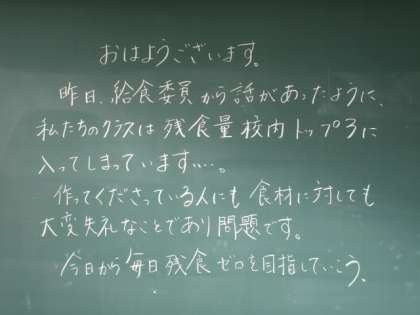 おはようございます。
昨日、給食委員から話があったように、
私たちのクラスは残食量校内トップ3に
入ってしまっています…。
作ってくださっている人にも食材に対しても
大変失礼なことであり問題です。
今日から毎日残食ゼロを目指していこう、